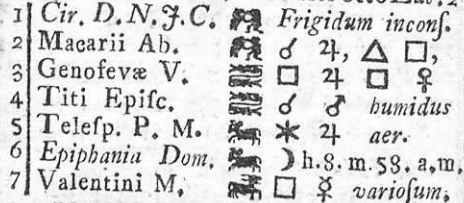 1 Cir. D. N. J. C. Frigidum inconſ.
2 Macarii Ab. ☌ ♃, △ □,
3 Genofevæ V. □ ♃ □ ♀
4 Titi Epiſc. ☌ ♂ humidus
5 Teleſp. P. M. ✶ ♃ aer.
6 Epiphania Dom. ☽ h. 8. m. 58. a.m.
7 Valentini M. □ ☿ varioſum.